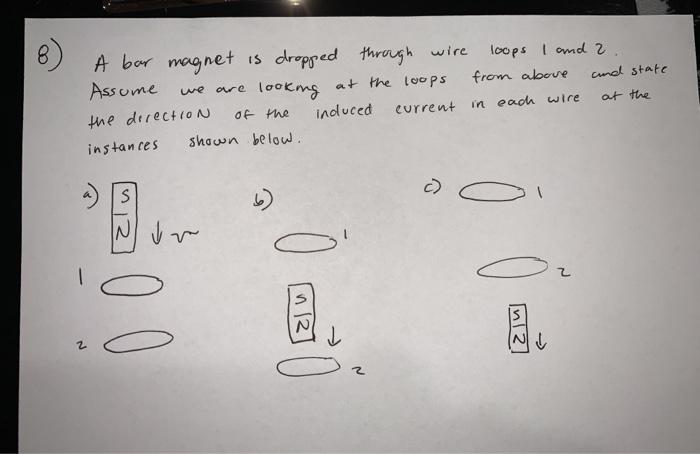 8) A bar magnet is dropped through wire loops 1 and 2.
Assume we are looking at the loops from above and state
the direction of the induced current in each wire at the
instances shown below.
a) S N v
1
2
b) 1
S N
2
c) 1
2
S N